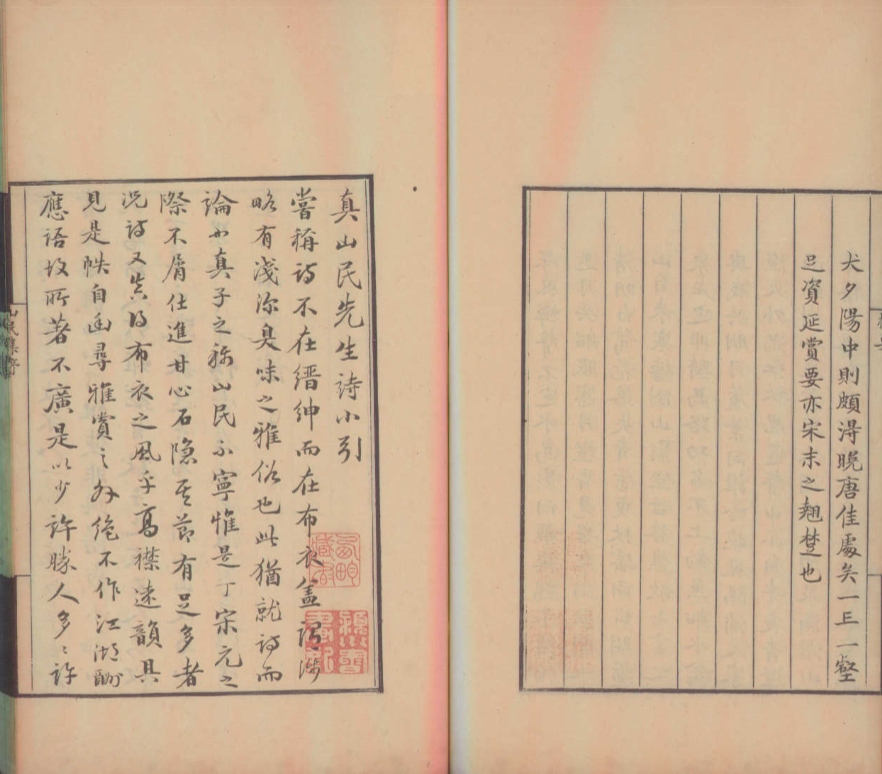 犬夕陽中則頗淂晚唐佳處矣一丘一壑
足資延賞要亦宋末之翹楚也
真山民先生詩小引
嘗稱詩不在縉紳而在布衣盖謂涉
略有淺深臭味之雅俗也此猶就詩而
論也真子之稱山民不寧惟是丁宋元之
際不屑仕進甘心石隐其節有足多者
况詩又其以布衣之風乎高襟遠韻具
見是帙自幽尋雅賞之外絶不作江湖酬
應語故所著不廣是以少許勝人多〻許